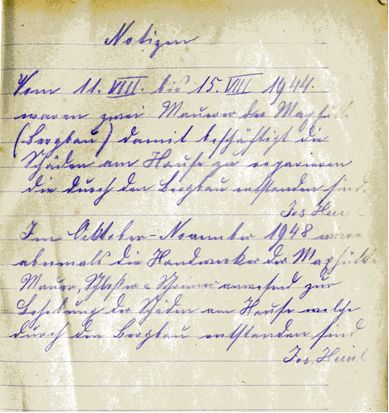 Notizen
Vom 11. VIII. bis 15. VIII 1944.
waren zwei Maurer der
(Bergbau) damit beschäftigt die
Schäden am Hause zu reparieren
die durch den Bergbau entstanden sind.
Jos. Heinl
Im Oktober-November 1948 waren
abermals die Handwerker der
Maurer, Schlosser u. Schreiner anwesend zur
Behebung der Schäden am Hause welche
durch den Bergbau entstanden sind
Jos. Heinl